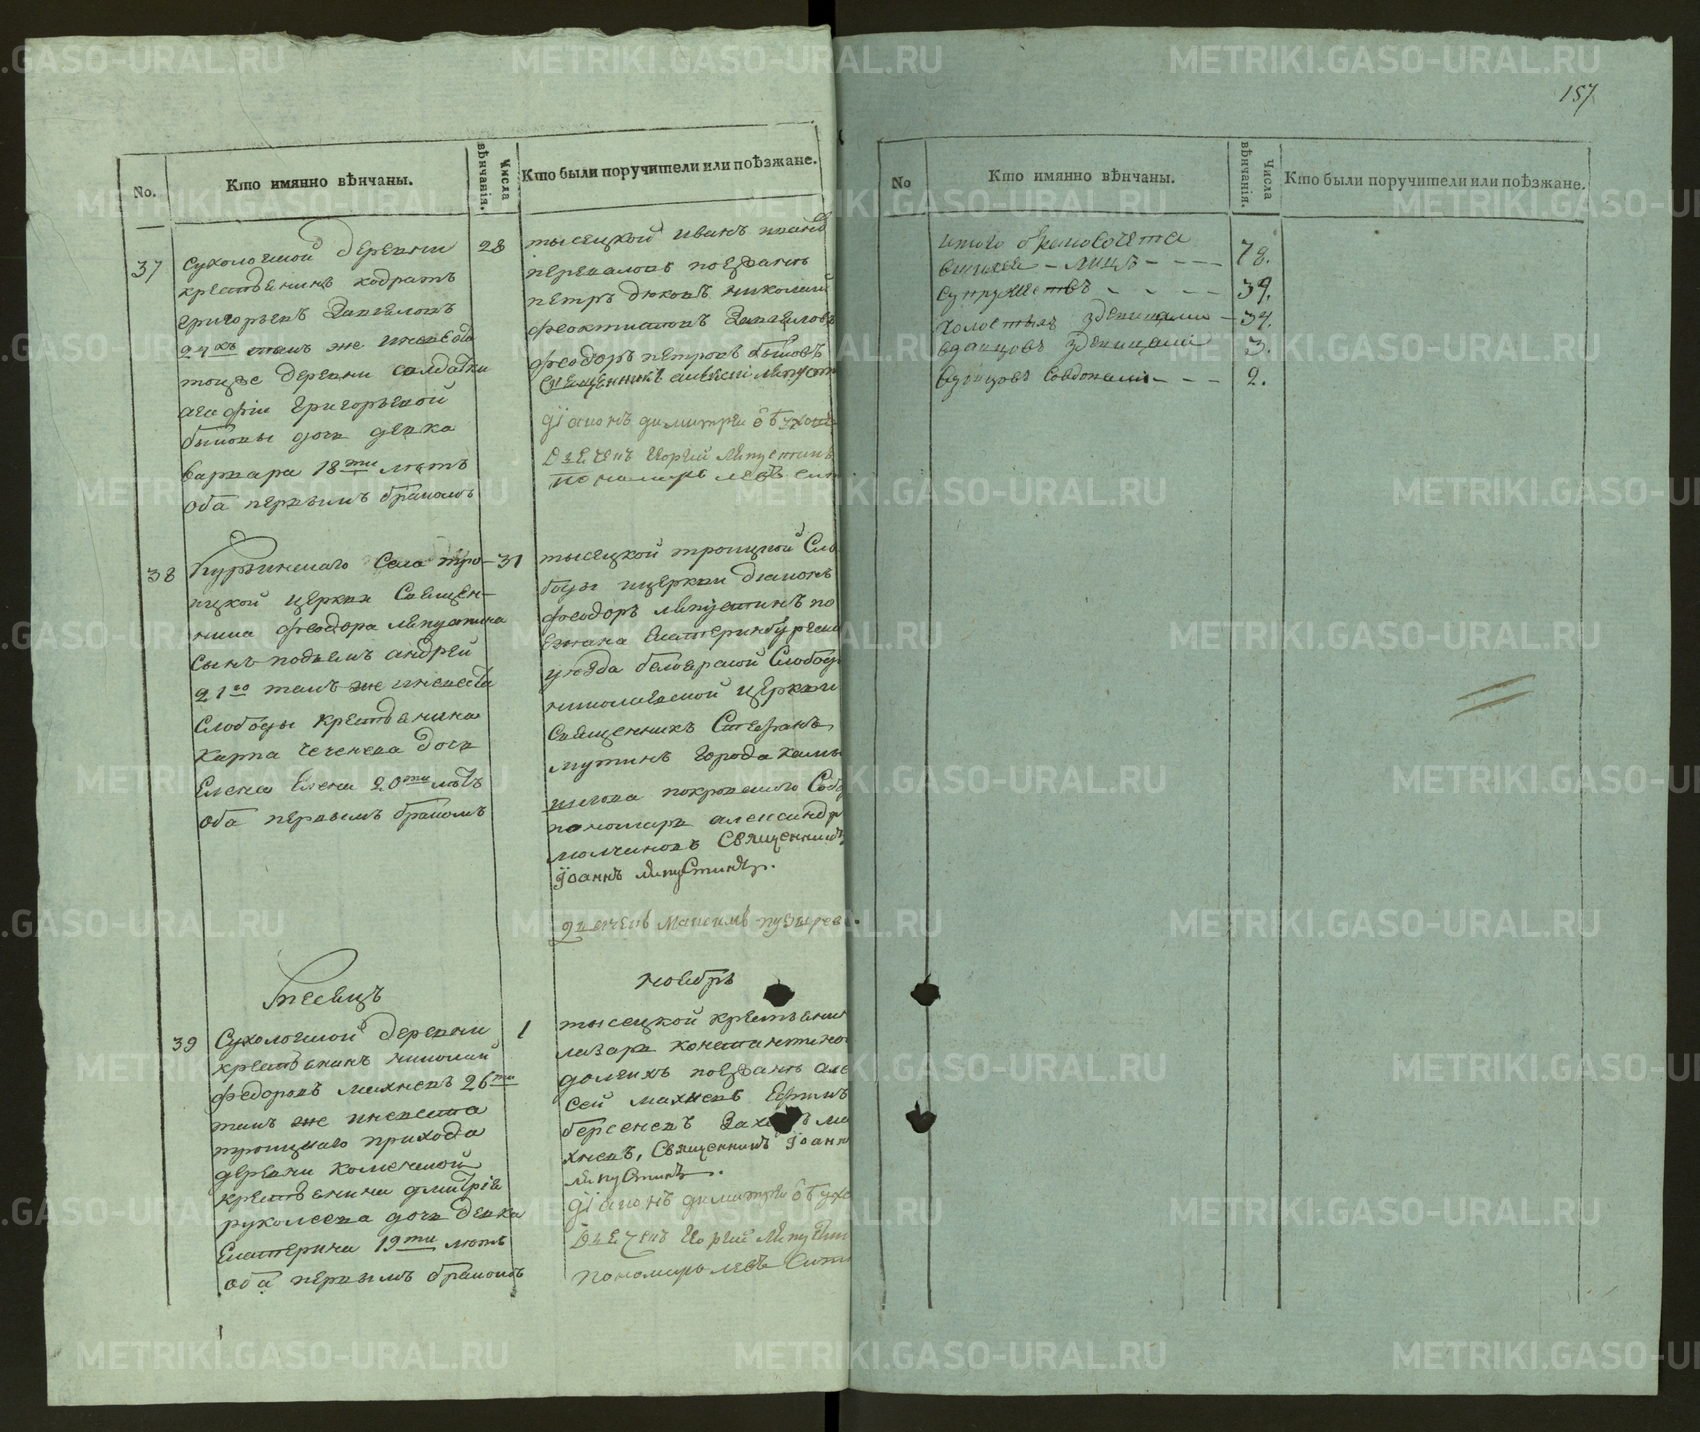 157
No.
Кто имянно вѣнчаны.
Числа вѣнчанія.
Кто были поручители или поѣзжане.
37
Сухоложской деревни
крестьянинъ кодратъ
григорьевъ
24хъ лѣтъ же невеста
тоцже деревни салдатки
агафiи григорьевой
быковы дочь девка
варвара 18ти летъ
оба первымъ бракомъ
28
тысецкой иванъ
перевалов поезжань
петръ дюковъ николаий
феоктистовъ
феодоръ петровъ быковъ
Священникъ алексiй
дiаконъ димитрiй
Дьячекъ георгий Ляпустинъ
пономарь левъ
38
Курьинскаго Села тро-
ицкой церкви Священ-
ника феодора ляпустина
сынъ андрей
21го невеста
Слободы крестьянина
карпа дочь
Елена 20ти летъ
оба первымъ бракомъ
31
тысецкой троицкой Сло
боды церкви диаконъ
феодоръ ляпустинъ по
езжана Екатеринбургска
уезда белоярской Слободы
николаевской церкви
Священникъ Стефанъ
мутинъ города камы
шлова покровскаго Собо
пономарь александр
молчановъ Священникъ
Iоаннъ ляпустинъ.
дьячекъ Максимъ пузырев
Месяцъ
ноябрь
39
Сухоложской деревни
крестьянинъ николай
федоровъ махневъ 26ти
невеста
троицкаго прихода
деревни
крестьянина дмитрiя
руколеева дочь девка
Екатерина 19ти летъ
оба первымъ бракомъ
1
тысецкой крестьянин
лазарь константино
долгихъ поезжань але
сей махневъ Ефимъ
берсеневъ ма
хневъ, Священникъ Iоанн
ляпустинъ.
дiаконъ димитрiй
Дьячекъ георгий Ляпустин
пономарь левъ
No
Кто имянно вѣнчаны.
Числа вѣнчанія.
Кто были поручители или поѣзжане.
итого бракосочета
вшихся – лицъ – – – – 78.
супружествъ – – – – 39.
холостыхъ здевицами – 34.
вдовцовъ здевицами 3.
вдовцовъ совдовами – – – 2.